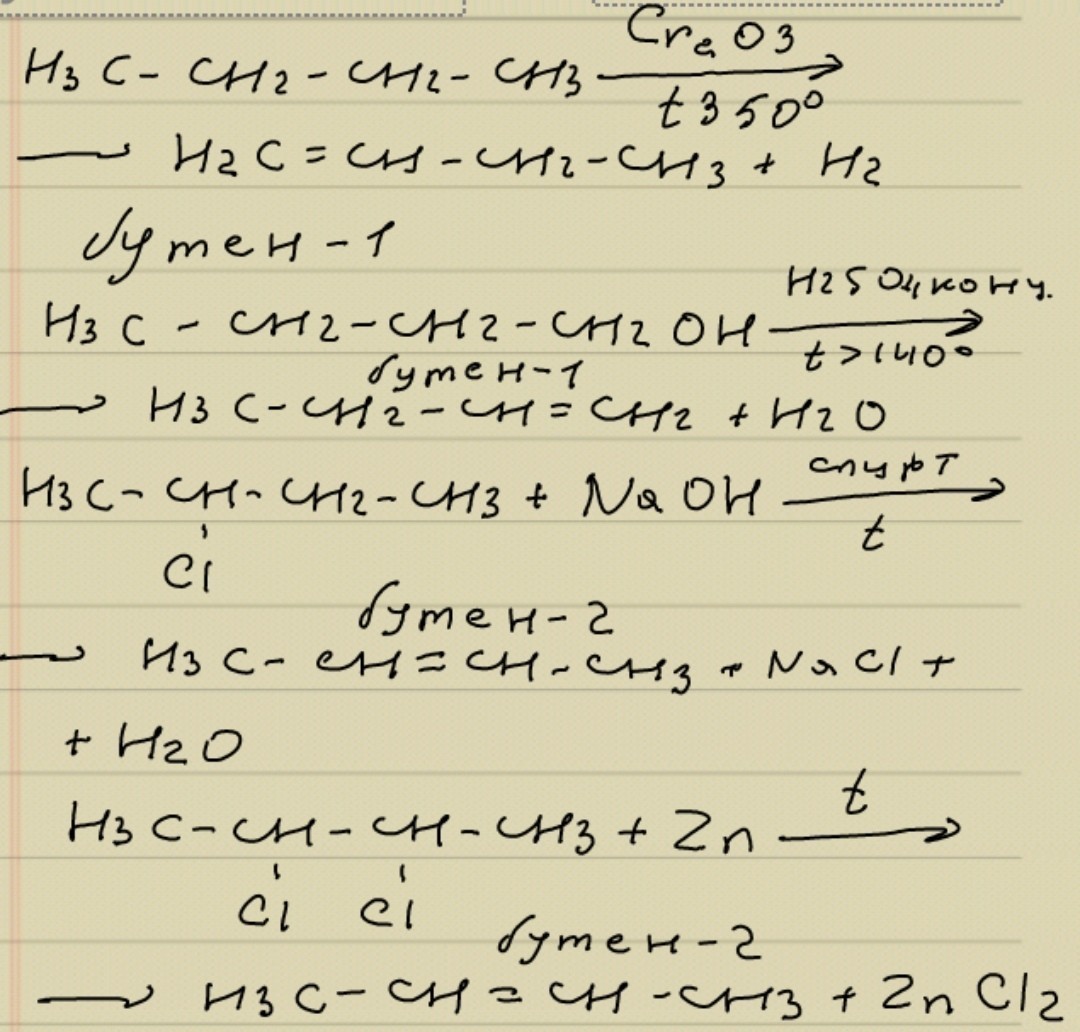 H3C-CH2-CH2-CH3 Cr2O3
t 350°
→ H2C=CH-CH2-CH3 + H2
бутен-1
H3C-CH2-CH2-CH2OH H2SO4 конц.
t>140°
бутен-1
→ H3C-CH2-CH=CH2 + H2O
H3C-CH-CH2-CH3 + NaOH спирт
t
Cl
бутен-2
→ H3C-CH=CH-CH3 + NaCl +
+ H2O
H3C-CH-CH-CH3 + Zn t
Cl Cl
бутен-2
→ H3C-CH=CH-CH3 + ZnCl2